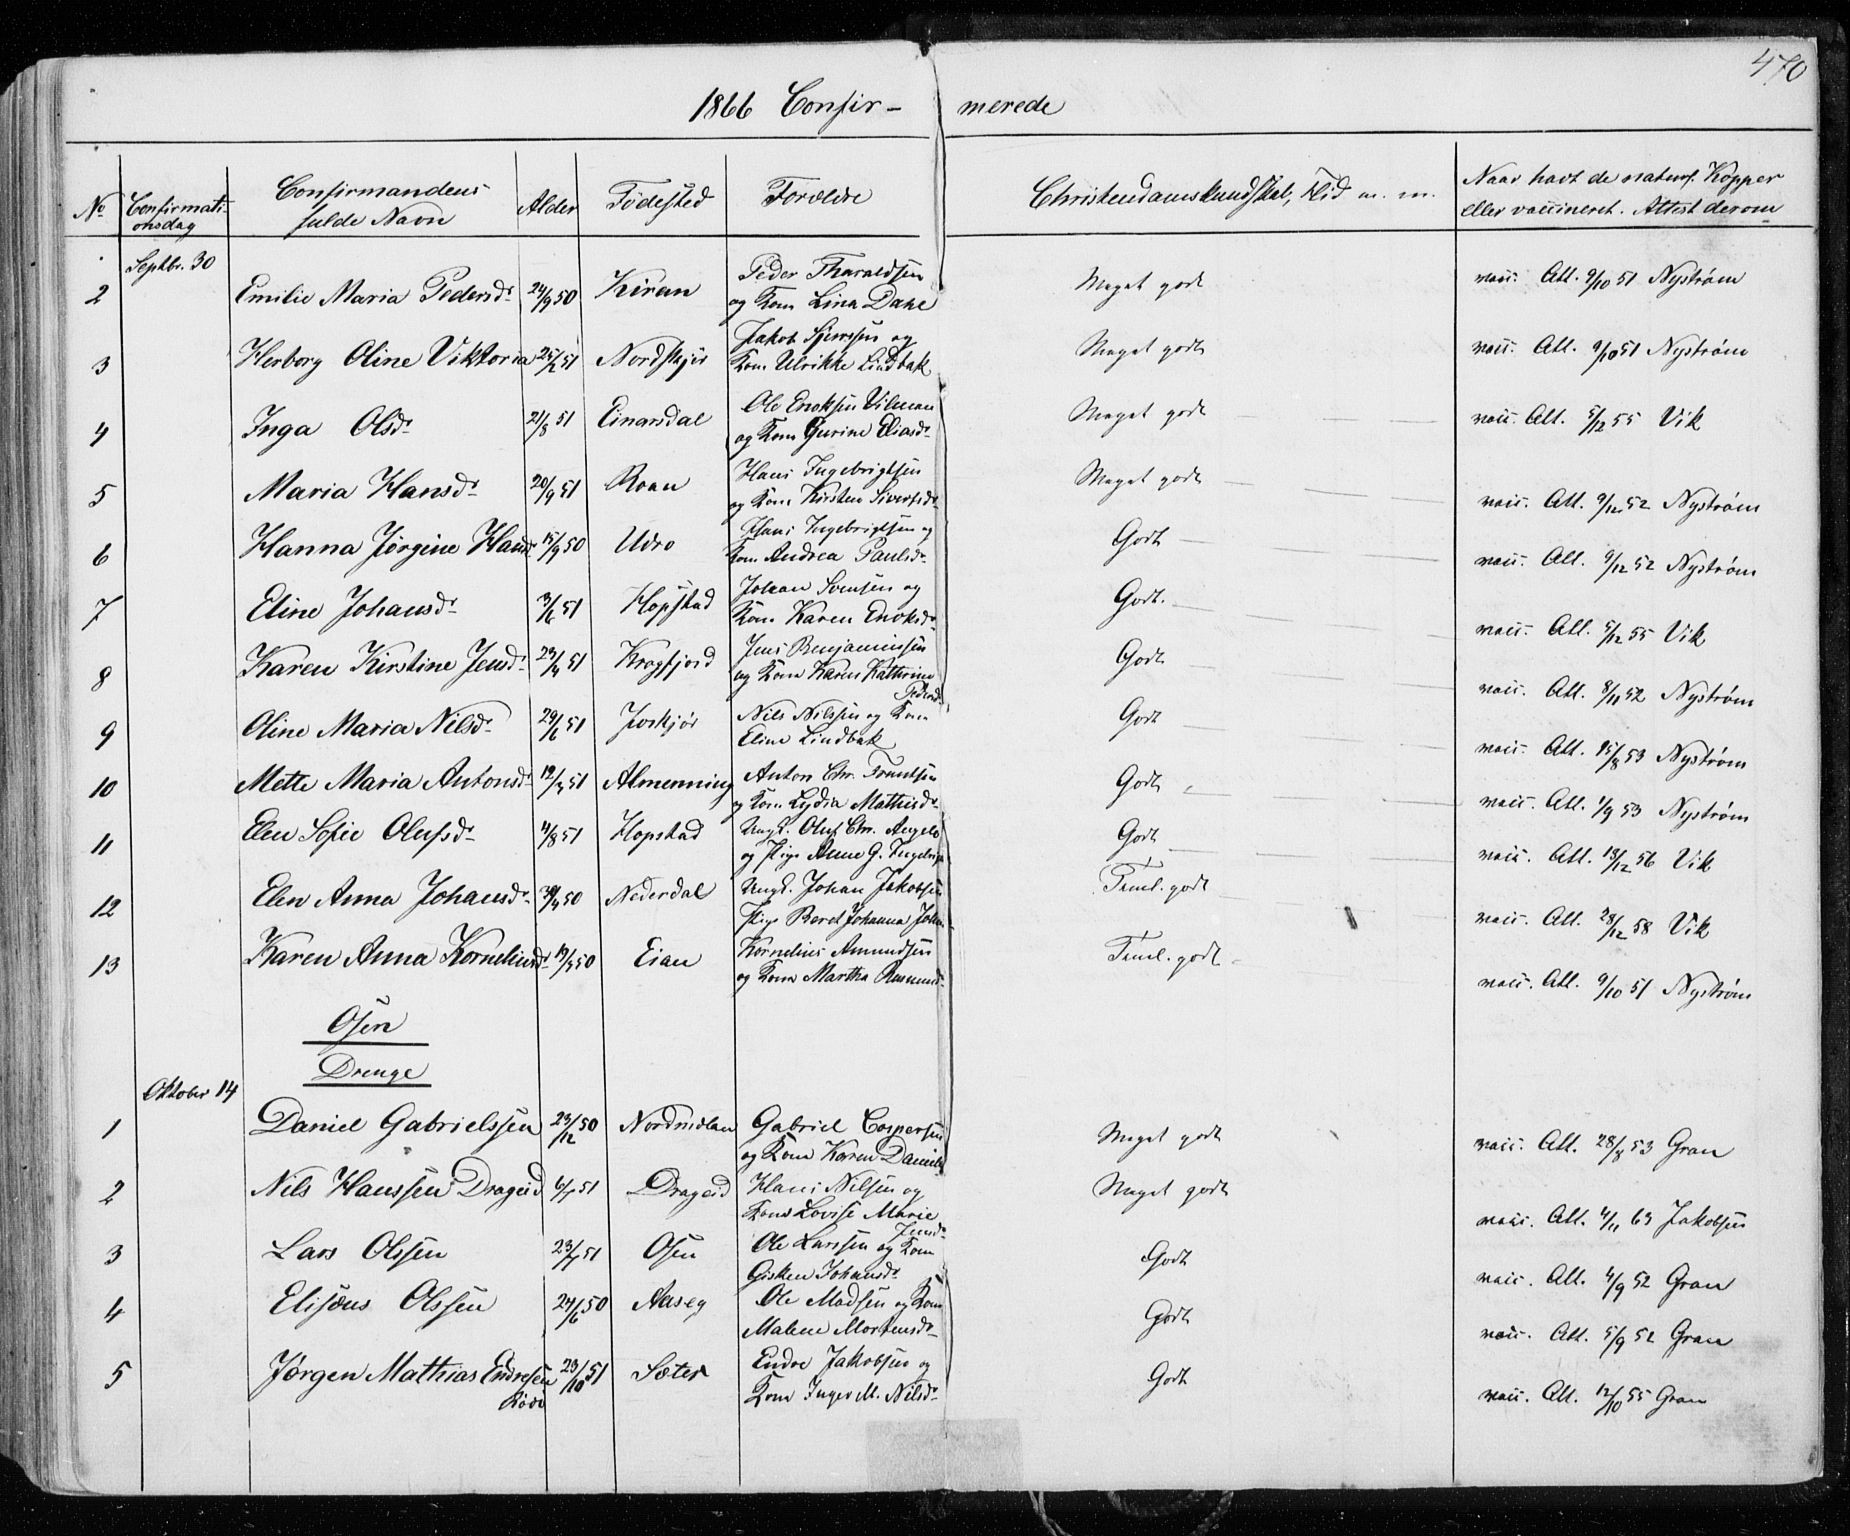 470
1866 Confir- merede
No Confirmati- onsdag Confirmandens fulde Navn Alder Födested Forældre Christendomskundskab, Flid m. m. Naar havt de naturl. Köpper eller vaccineret. Attest derom
Septbr. 30
2 Emilie Maria Pedersdr 24/9 50 Kiran Peder Tharaldsen og Kone Lina Dahl Meget godt vacc. Att. 9/10 51 Nyström
3 Herborg Oline Viktoria 25/2 51 Nordskjör Jakob og Kone Ulrikke Lindbak Meget godt vacc. Att. 9/10 51 Nyström
4 Inga Olsdr 21/8 51 Einarsdal Ole Enoksen Vilman og Kone Gurine Eliasdr Meget godt vacc. Att. 5/12 55 Vik
5 Maria Hansdr 20/9 51 Roan Hans Ingebrigtsen og Kone Kirsten Sivertsdr Meget godt vacc. Att. 9/12 52 Nyström
6 Hanna Jörgine Hansdr 15/9 50 Udro Hans Ingebrigtsen og Kone Andrea Paulsdr Godt vacc. Att. 9/12 52 Nyström
7 Eline Johansdr 3/6 51 Hopstad Johan Svensen og Kone Karen Enoksdr Godt. vacc. Att. 5/12 55 Vik
8 Karen Kirstine Jensdr 23/4 51 Kragfjord Jens Benjaminsen og Kone Karen Kathrine Pedersdr Godt vacc. Att. 8/11 52 Nyström
9 Oline Maria Nilsdr 29/6 51 Joskjör Nils Nilssen og Kone Eline Lindbak Godt vacc. Att. 15/8 53 Nyström
10 Mette Maria Antonsdr 51 Almenning Anton Chr. og Kone Lydia Mathisdr Godt vacc. Att. 1/9 53 Nyström
11 Elen Sofie Olufsdr 11/8 51 Hopstad Ungk. Oluf Chr. Angelo og Pige Anne G. Godt vacc. Att. 13/12 56 Vik
12 Elen Anna Johansdr 50 Nederdal Ungk. Johan Jakobsen Pige Beret Johanna Teml. godt vacc. Att. 28/12 58 Vik
13 Karen Anna Korneliusdr 50 Eian Kornelius Amundsen og Kone Martha Teml. godt vacc. Att. 9/10 51 Nyström
Osen
Drenge
Oktober 14
1 Daniel Gabrielssen 23/12 50 Nordmelan Gabriel Caspersen og Kone Karen Meget godt vacc. Att. 28/8 53 Gran
2 Nils Hanssen Drageid 51 Drageid Hans Nilsen og Kone Lovise Marie Jensdr Meget godt vacc. Att. 4/11 63 Jakobsen
3 Lars Olssen 51 Osen Ole Larssen og Kone Gisken Johansdr Godt vacc. Att. 4/9 52 Gran
4 Elisæus Olssen 24/6 50 Aaseg Ole Madsen og Kone Malene Mortensdr Godt vacc. Att. 5/9 52 Gran
5 Jörgen Mathias Endresen 23/10 51 Sæter Endre Jakobsen og Kone Inger M. Nilsdr Godt vacc. Att. 12/10 55 Gran